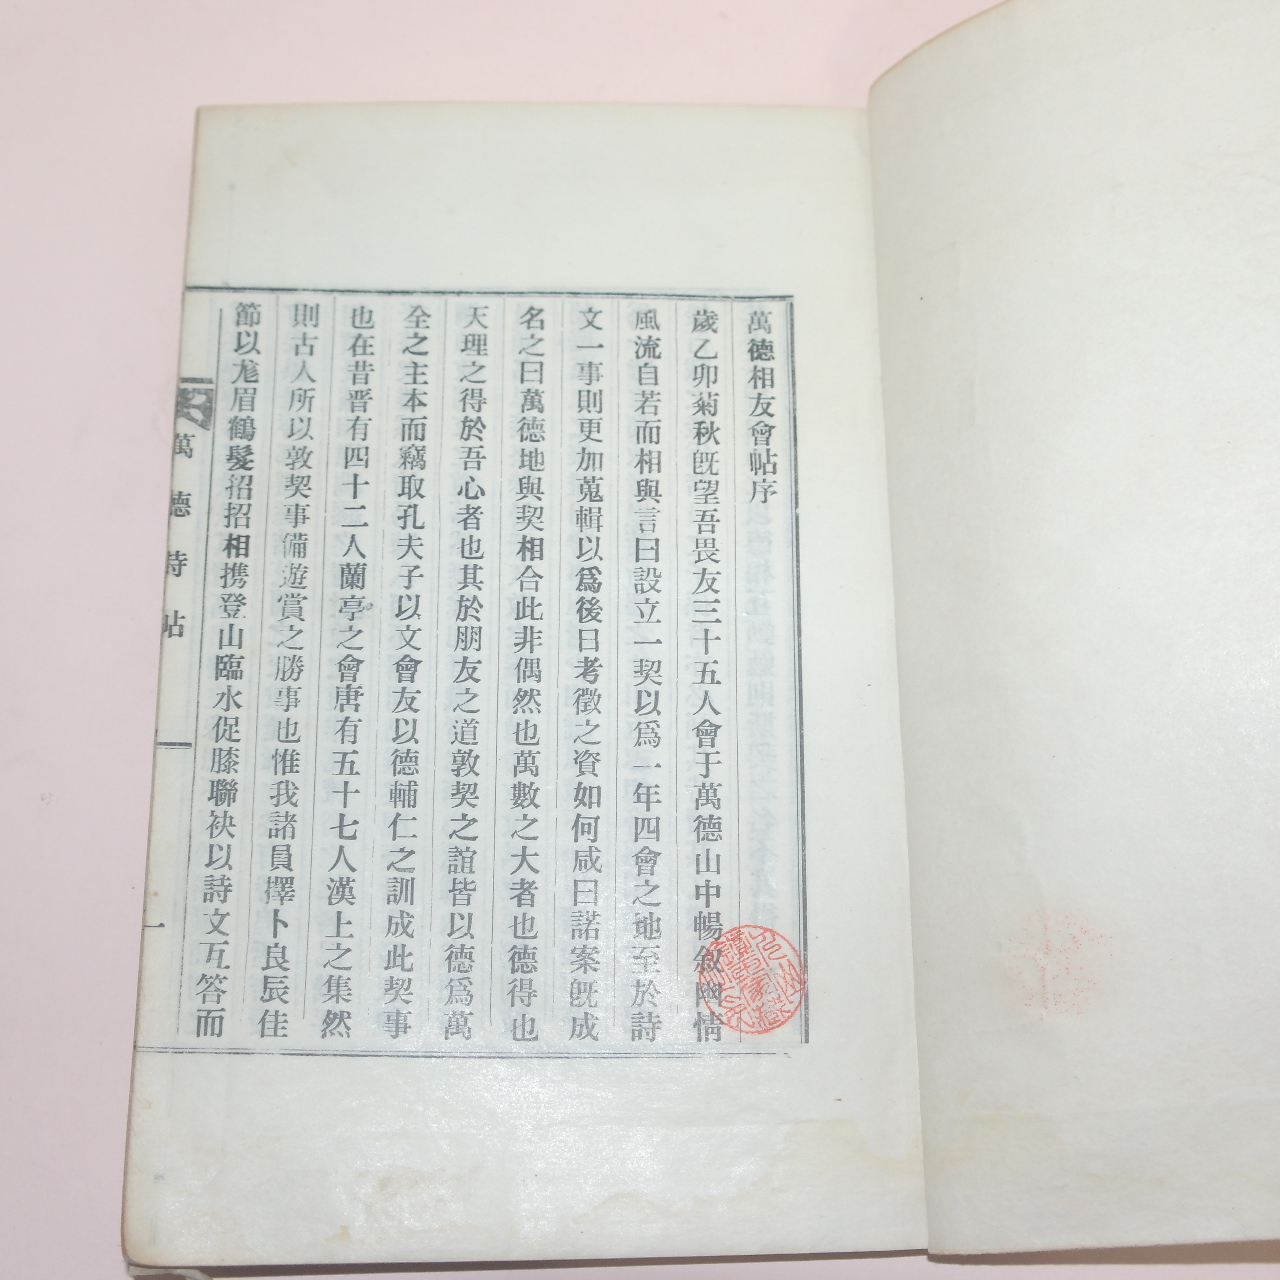 萬德相友會帖序
歲乙卯菊秋旣望吾畏友三十五人會于萬德山中暢叙幽情
風流自若而相與言曰設立一契以爲一年四會之地至於詩
文一事則更加蒐輯以爲後日考徵之資如何咸曰諾案旣成
名之曰萬德地與契相合此非偶然也萬數之大者也德得也
天理之得於吾心者也其於朋友之道敦契之誼皆以德爲萬
全之主本而竊取孔夫子以文會友以德輔仁之訓成此契事
也在昔晋有四十二人蘭亭之會唐有五十七人漢上之集然
則古人所以敦契事備遊賞之勝事也惟我諸員擇卜良辰佳
節以尨眉鶴髮招招相携登山臨水促膝聯袂以詩文互答而
萬德詩帖
一